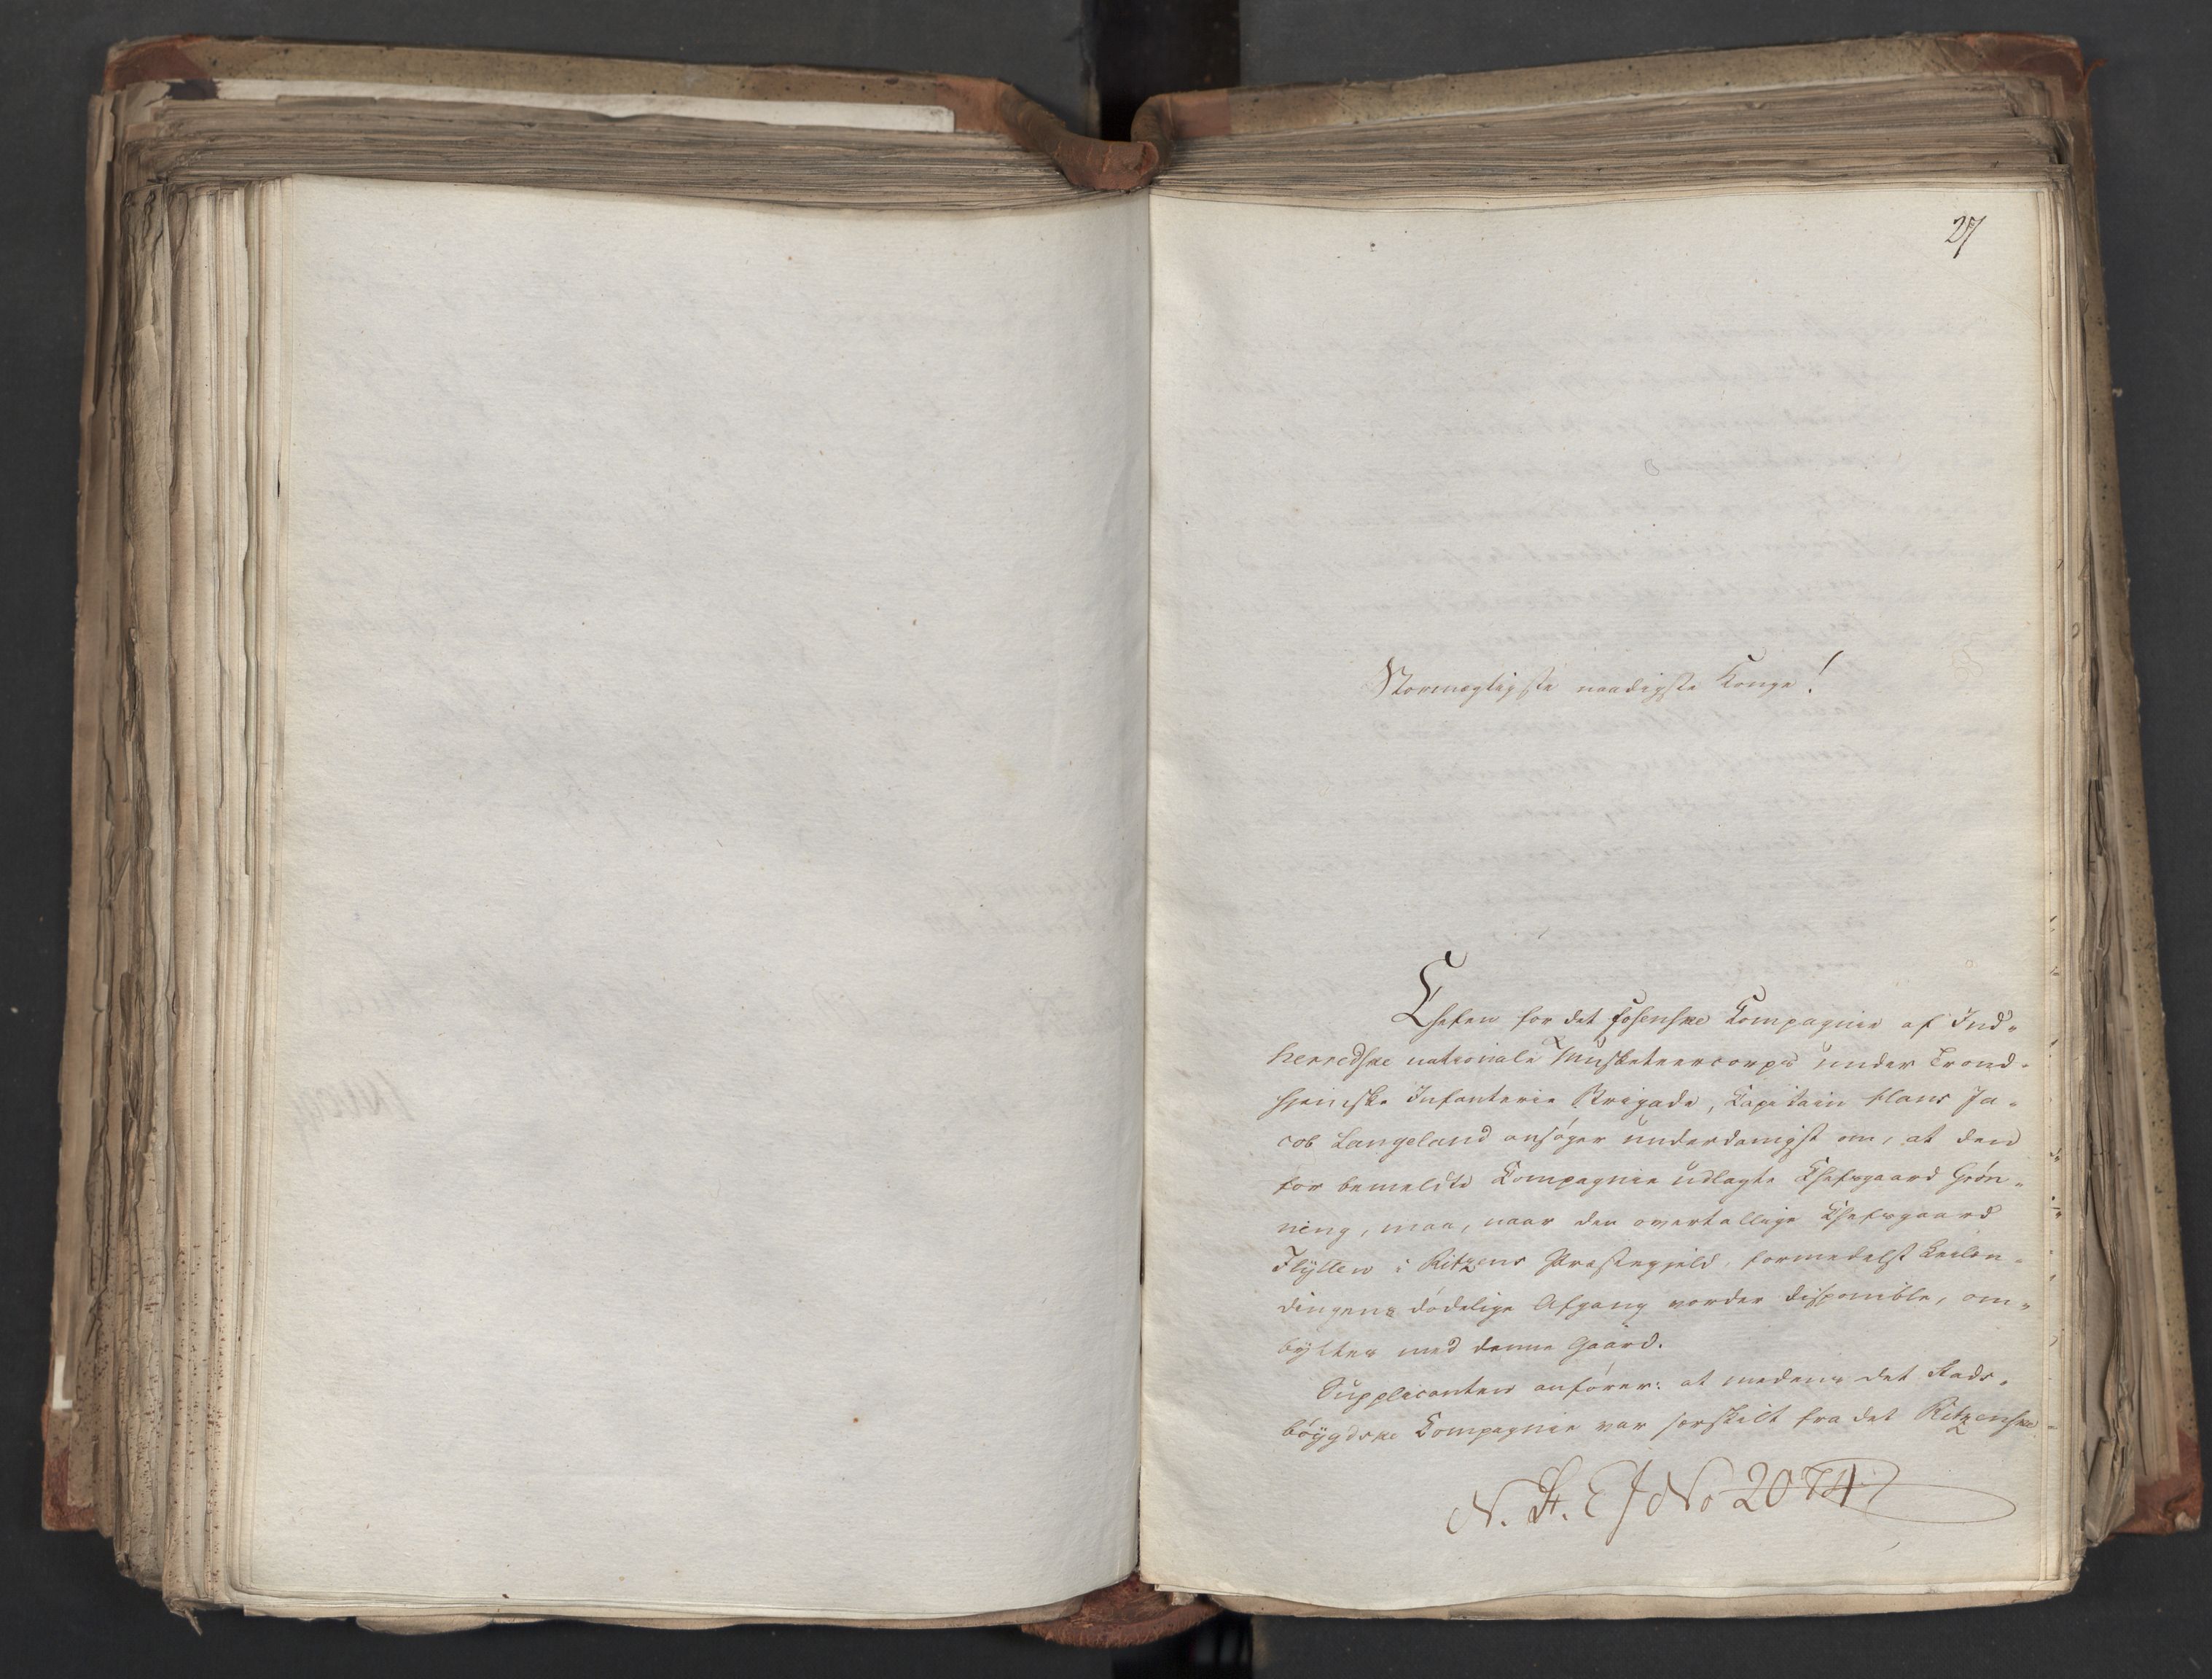 27
Stormægtigste naadigste Konge!
Chefen for det fosenske Kompagnie af Ind-
herredske nationale Musketeercorps under Trond-
hjemske Infanterie Brigade, Kapitain Hans Ja-
cob Langeland ansøger underdanigst om, at den
for bemeldte Kompagnie udlagte Chefsgaard Grøn-
ning, maa, naar den overtallige Chefsgaard
Flÿtten i Ritzens Præstegjeld, formedelst
dingens dødelige Afgang vorder disponible, om-
bÿttes med denne Gaard.
Supplicanten anfører: at medens det Stads-
böÿgdske Kompagnie var særskilt fra det Ritzenske
N. H. E J No 2074